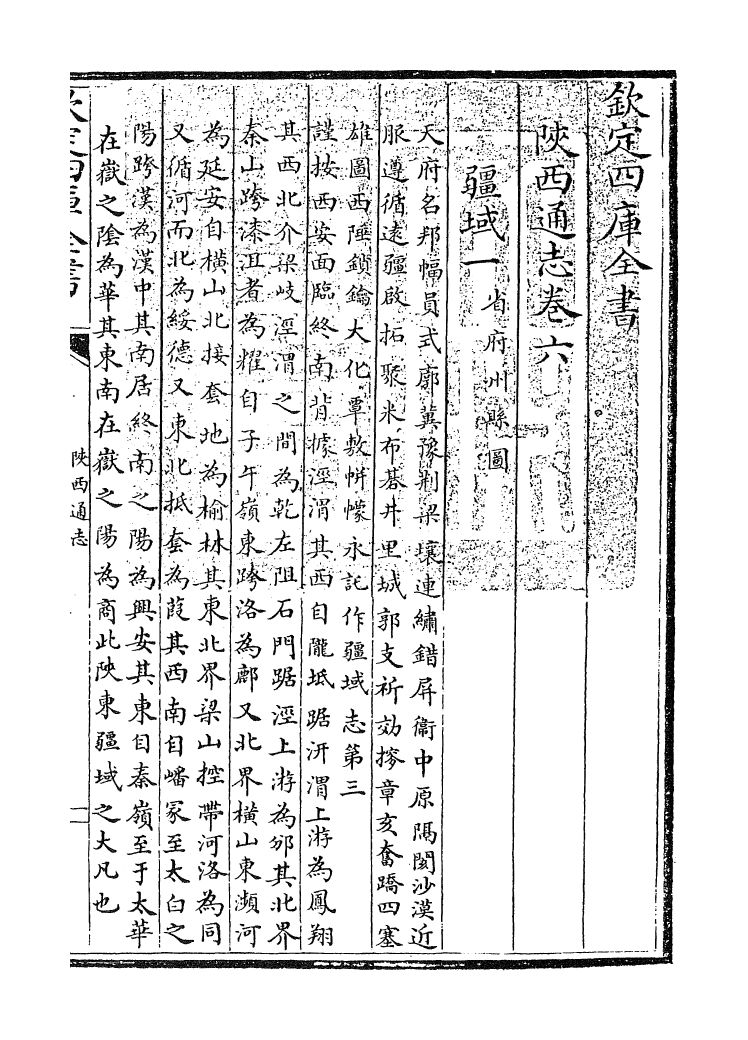 欽定四庫全書
陝西通志卷六
疆域一省府州縣圖
天府名邦幅員式廓冀豫荆梁壤連繡錯屏衞中原隔閡沙漠近
服遵循逺疆啟拓聚米布碁井里城郭支祈効搒章亥奮蹻四塞
雄圖西陲鎖鑰大化覃敷帡幪永託作疆域志第三
謹按西安面臨終南背據涇渭其西自隴坻踞汧渭上游為鳳翔
其西北介梁岐涇渭之間為乾左阻石門踞涇上游為邠其北界
秦山跨漆沮者為耀自子午嶺東跨洛為鄜又北界橫山東瀕河
為延安自橫山北接套地為榆林其東北界梁山控帶河洛為同
又循河而北為綏德又東北抵套為葭其西南自嶓冢至太白之
陽跨漢為漢中其南居終南之陽為興安其東自秦嶺至于太華
在嶽之陰為華其東南在嶽之陽為商此陜東疆域之大凡也
欽定四庫全書
陜西通志
一